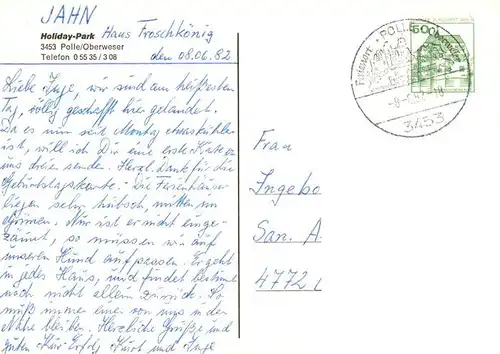 JAHN
Holiday-Park Haus Froschkönig
3453 Polle/Oberweser
Telefon 0 55 35 / 3 08 den 08.06.82
Liebe Inge, wir sind am heißesten
Tag, völlig geschafft hier gelandet.
Da es nun seit Montag etwas kühler
ist, will ich Dir eine erste Karte von
uns dreien senden. Herzl. Dank für die
Geburtstagskarte. Die Ferienhäuser
liegen sehr hübsch, mitten im
Grünen. Nur ist er nicht einge-
zäunt, so müssen wir auf
unseren Hund aufpassen. Er geht
in jedes Haus, und findet bestimmt
noch nicht allein zurück. So
muß immer einer von uns in der
Nähe bleiben. Herzliche Grüße und
guten Kur Erfolg Kurt und Inge
POLLE
500
-8.-6.82-18
3453
Frau
Ingebo
San. A
4772